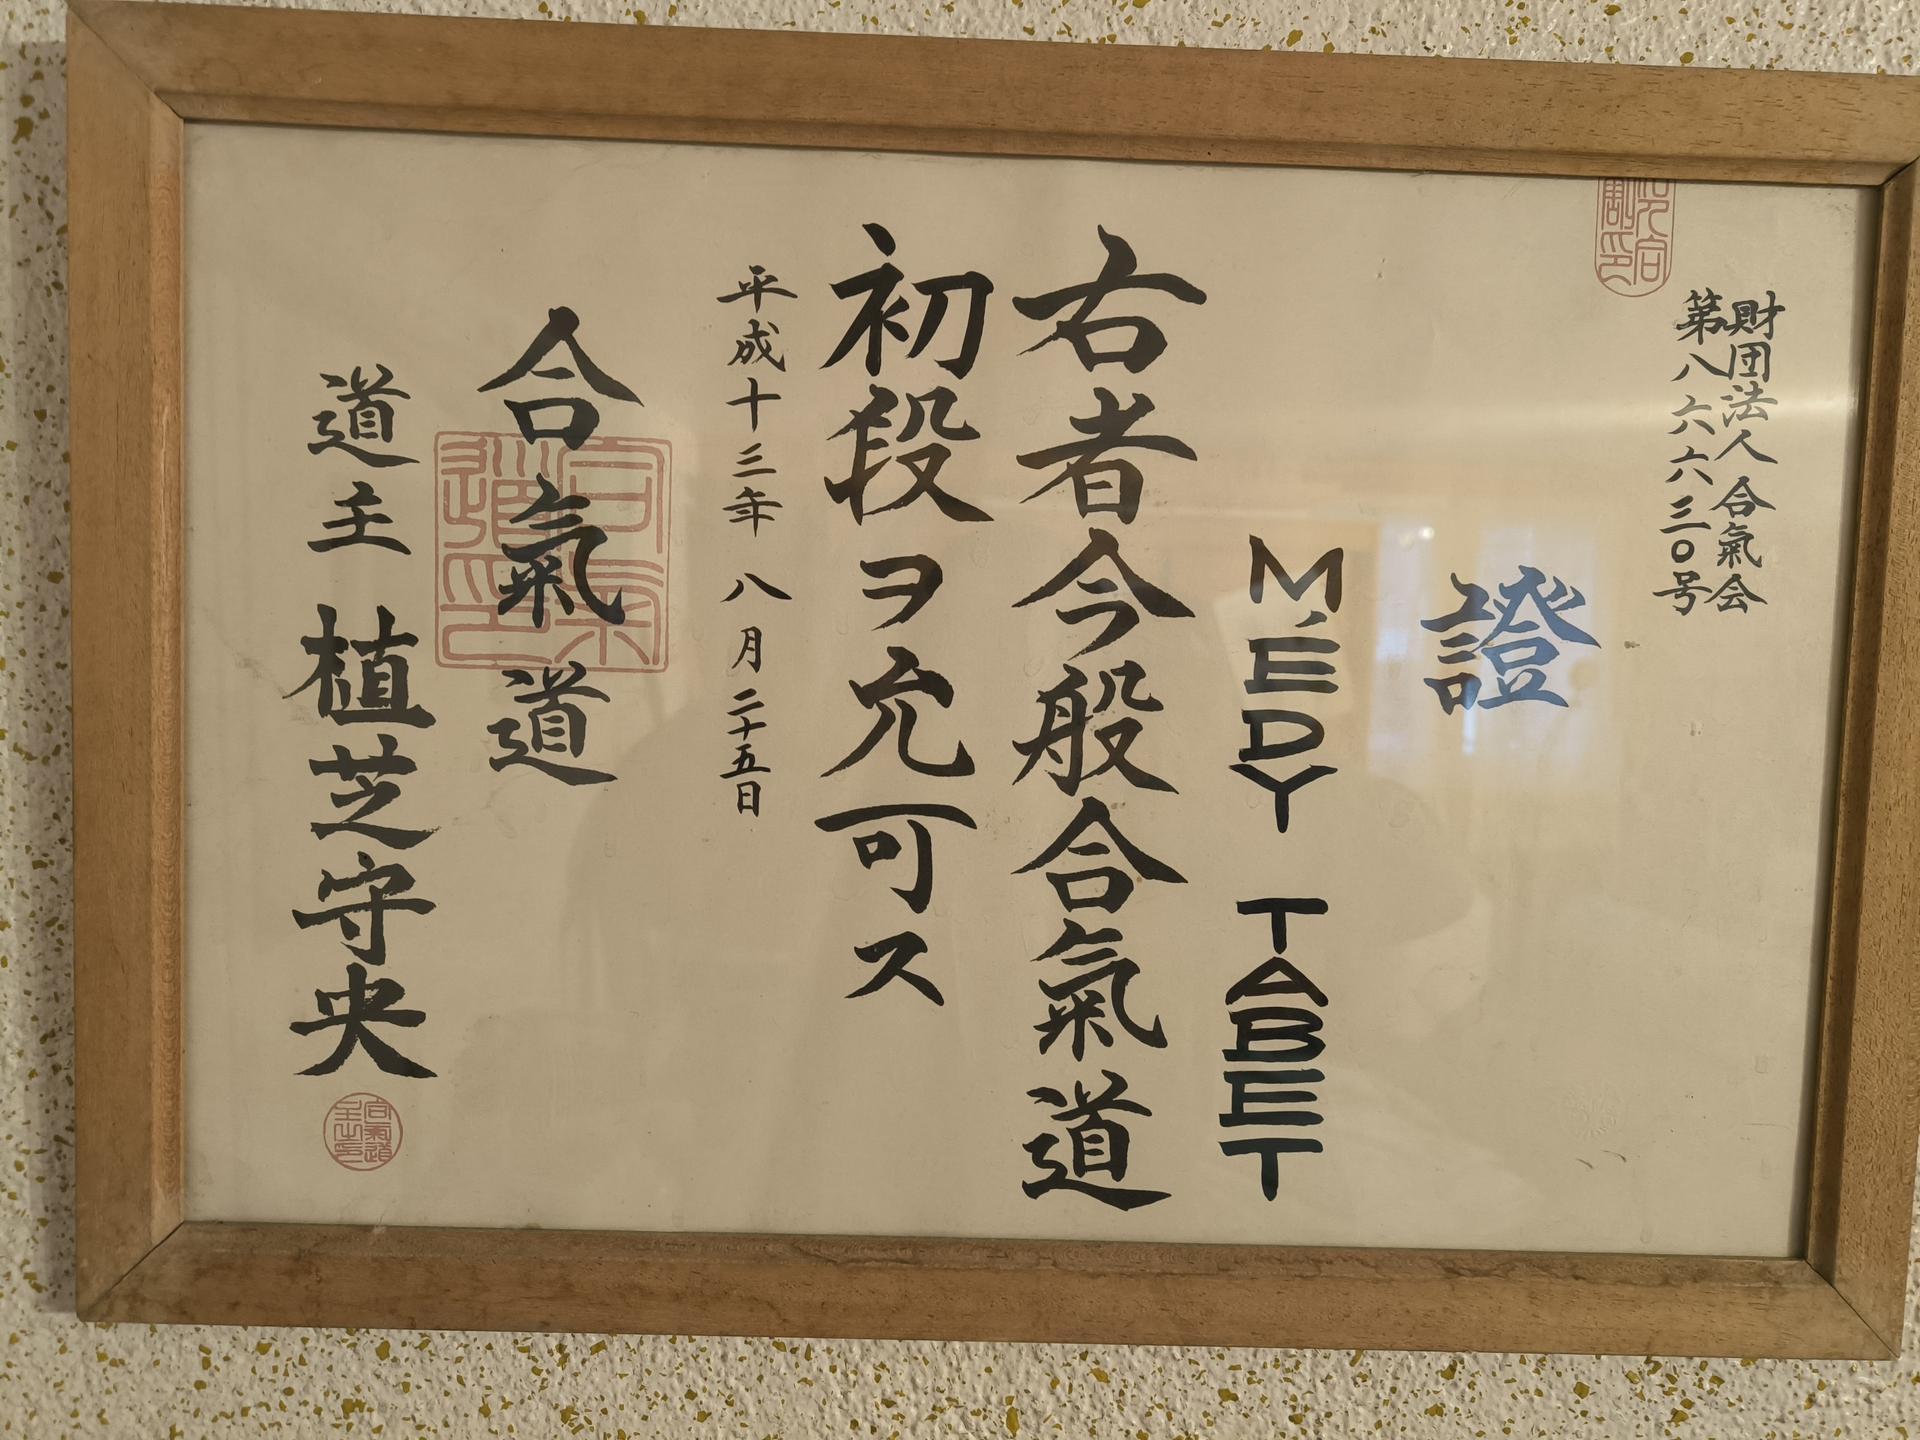 財団法人 合氣会
第八六六三〇号
證
MÉDY TABET
右者今般合氣道
初段ヲ允可ス
平成十三年 八月二十五日
合氣道
道主 植芝守央